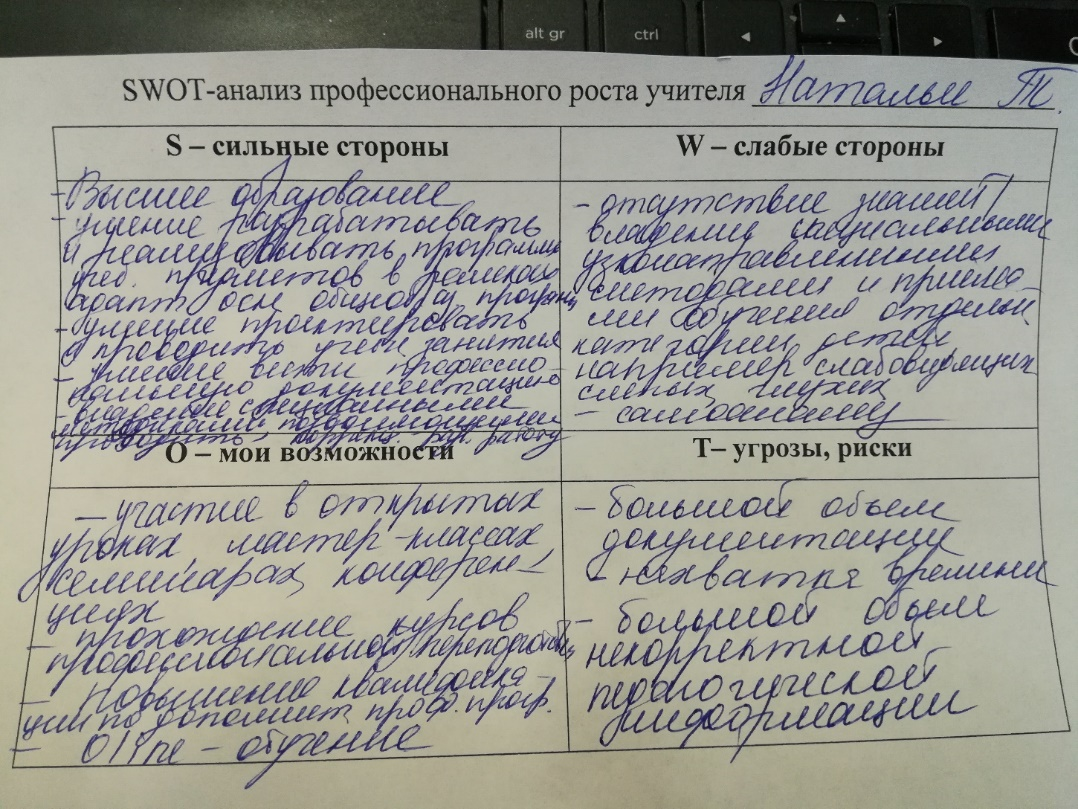 alt gr
ctrl
SWOT-анализ профессионального роста учителя Натальи Т.
S – сильные стороны
- Высшее образование
- умение разрабатывать
и реализовывать программы
учеб. предметов в рамках
адапт. осн. общеобр. программ
- умение проектировать
и проводить учебн. занятия
- умение вести профессио-
нальную документацию
- владение специальными
методиками позволяющими
проводить коррекц. раз. работу
W – слабые стороны
- отсутствие знаний/
владения специальными
узконаправленными
методами и приема-
ми обучения отдельн.
категории детей
например слабовидящих
слепых, глухих
- самоанализ
О – мои возможности
- участие в открытых
уроках мастер-классах
семинарах, конферен-
циях
- прохождение курсов
профессиональной переподготовки
- Повышение квалифика-
ции по дополнит. проф. прогр.
- Online - обучение
Т– угрозы, риски
- большой объем
документации
- нехватка времени
- большой объем
некорректной
педагогической
информации